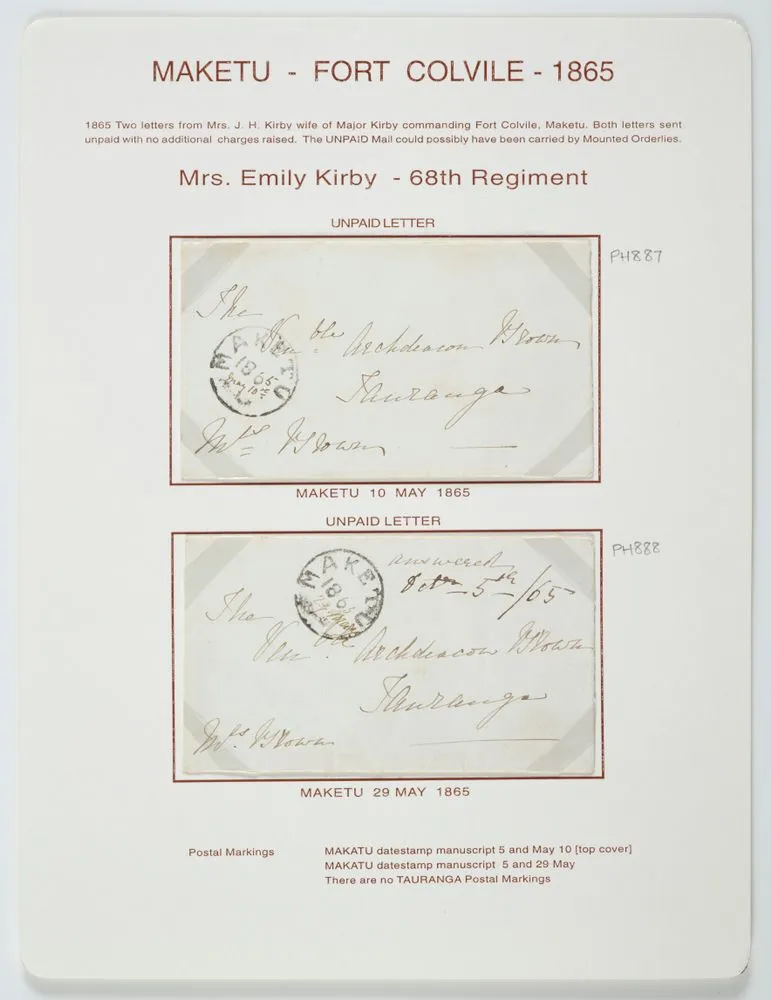 MAKETU - FORT COLVILE - 1865
1865 Two letters from Mrs. J. H. Kirby wife of Major Kirby commanding Fort Colvile, Maketu. Both letters sent
unpaid with no additional charges raised. The UNPAID Mail could possibly have been carried by Mounted Orderlies.
Mrs. Emily Kirby - 68th Regiment
UNPAID LETTER
PH887
The
Venble Archdeacon Brown
MAKETU
1865
May 10
Tauranga
Mrs Brown
MAKETU 10 MAY 1865
UNPAID LETTER
PH888
answered
Octr 5th/65
MAKETU
186
The
Venble Archdeacon Brown
Tauranga
Mrs. Brown
MAKETU 29 MAY 1865
Postal Markings
MAKATU datestamp manuscript 5 and May 10 [top cover]
MAKATU datestamp manuscript 5 and 29 May
There are no TAURANGA Postal Markings